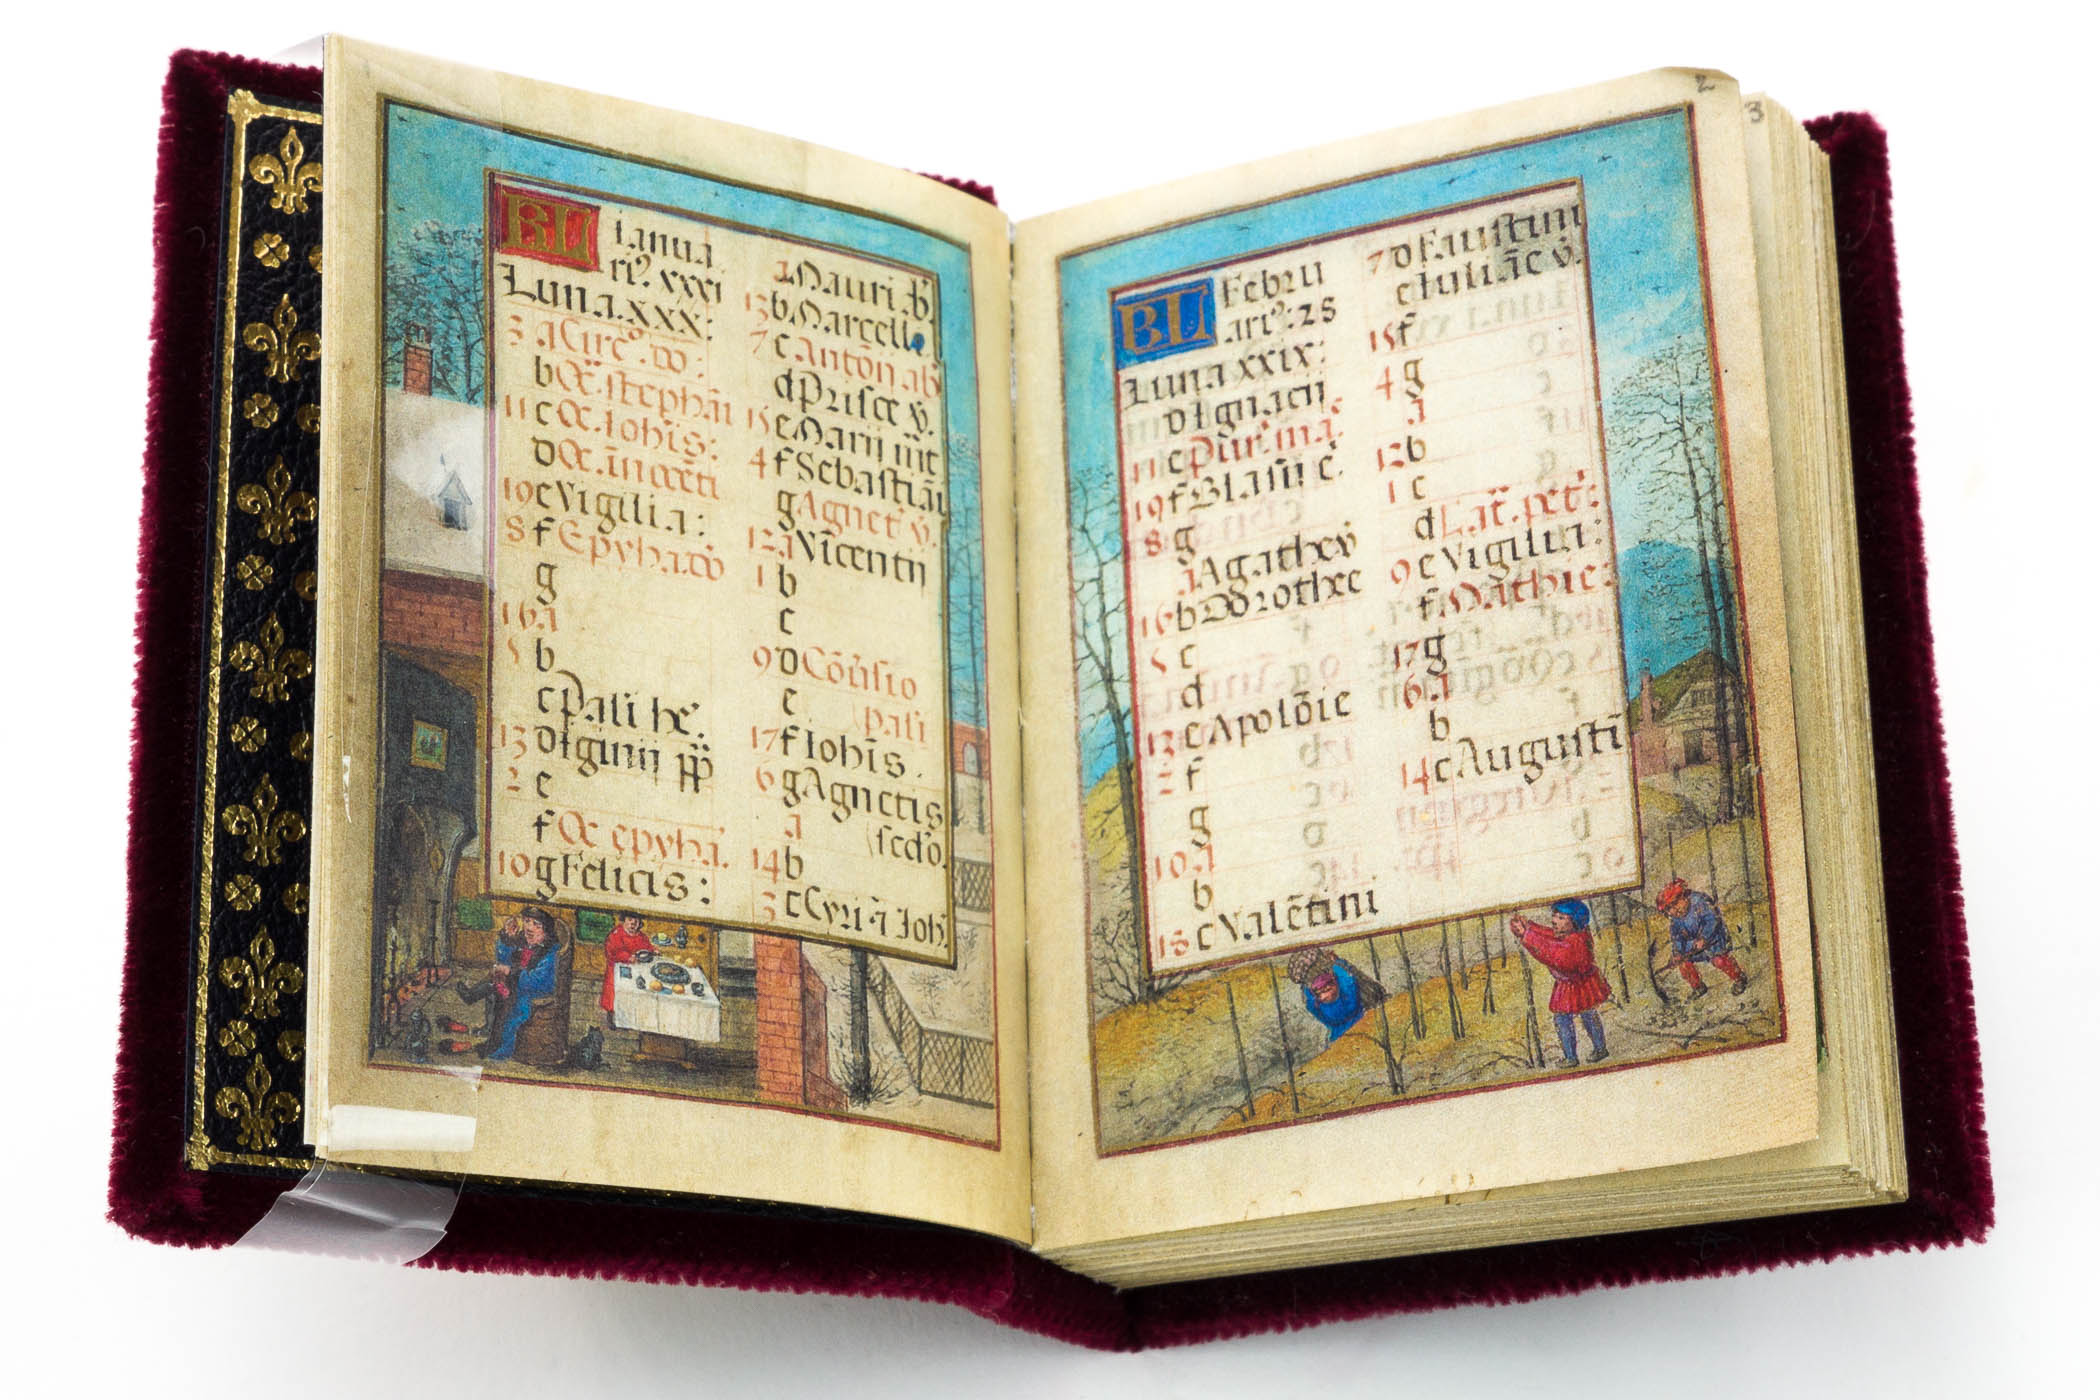 KL Ianua
ri⁹. xxxi
Luna. xxx:
3 a Circ̄⁹. do:
b Oc̄. stephāi
11 c Oc̄. Ioh̄is:
d Oc̄. īnocēti
19 e Vigilia:
8 f Epyhā. dō
g
16 a
5 b
c Pauli he⁹.
13 d Iginii pp̄
2 e
f Oc̄ epyhā.
10 g Felicis:
a Mauri ab̄.
13 b Marcelli.
7 c Antōii ab̄
d Prisce v̄.
15 e Marii m̄t
4 f Sebastiāi
g Agnet⁹ v̄.
12 a Vīcentii
1 b
c
9 d Cōu̅sio
e pali
17 f Ioh̄is.
6 g Agnetis
a secdo.
14 b
3 c Cyri ā Ioh̄.
KL Febru
ari⁹: 28
Luna xxix:
d Ignacii
11 e Pur⁹. ma.
19 f Blasii ē.
8 g
a Agathe v̄
16 b Dorothee
5 c
d
13 e Apolōie
2 f
g
10 a
b
18 c Valētini
7 d Faustini
e Iuliāe v̄.
15 f
4 g
a
12 b
1 c
d Cat̄. pet⁹:
9 e Vigilia:
f Mathie:
17 g
6 a
b
14 c Augustī
2
3